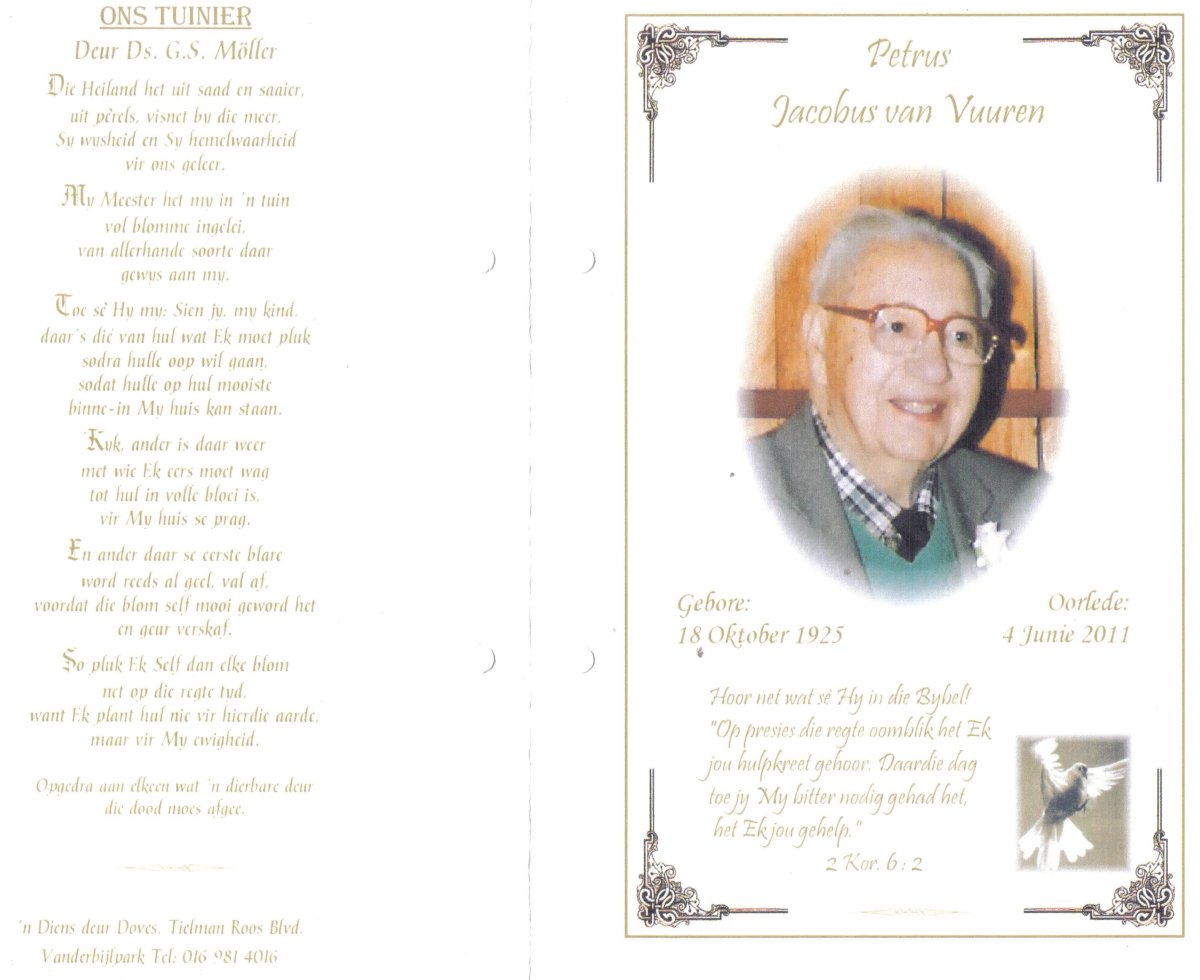 ONS TUINIER
Deur Ds. G.S. Möller
Die Heiland het uit saad en saaier,
uit pêrels, visnet by die meer,
Sy wysheid en Sy hemelwaarheid
vir ons geleer.
My Meester het my in 'n tuin
vol blomme ingelei,
van allerhande soorte daar
gewys aan my.
Toe sê Hy my: Sien jy, my kind,
daar's dié van hul wat Ek moet pluk
sodra hulle oop wil gaan,
sodat hulle op hul mooiste
binne-in My huis kan staan.
Kyk, ander is daar weer
met wie Ek eers moet wag
tot hul in volle bloei is,
vir My huis se prag.
En ander daar se eerste blare
word reeds al geel, val af,
voordat die blom self mooi geword het
en geur verskaf.
So pluk Ek Self dan elke blom
net op die regte tyd,
want Ek plant hul nie vir hierdie aarde,
maar vir My ewigheid.
Opgedra aan elkeen wat 'n dierbare deur
die dood moes afgee.
'n Diens deur Doves, Tielman Roos Blvd.
Vanderbijlpark Tel: 016 981 4016
Petrus
Jacobus van Vuuren
Gebore:
18 Oktober 1925
Oorlede:
4 Junie 2011
Hoor net wat sê Hy in die Bybel!
"Op presies die regte oomblik het Ek
jou hulpkreet gehoor. Daardie dag
toe jy My bitter nodig gehad het,
het Ek jou gehelp."
2 Kor. 6 : 2